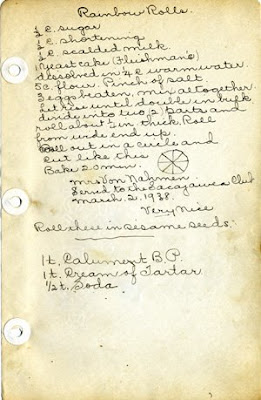 Rainbow Rolls.
½ C. sugar
½ C. shortening
½ C. scalded milk.
1 yeast cake (Fleishman's)
dissolved in ¼ C warm water.
5 C. flour. Pinch of salt.
3 eggs beaten, mix altogether.
Let rise until double in bulk
divide into two (2) parts and
roll about ½ in. thick. Roll
from wide end up.
Roll out in a circle and
cut like this
Bake 20 min.
Mrs Von Nahmen.
Served to the Club
March. 2, 1938.
Very Nice
Roll these in sesame seeds.
1 t. Calumet B.P.
1 t. Cream of Tartar
½ t. Soda